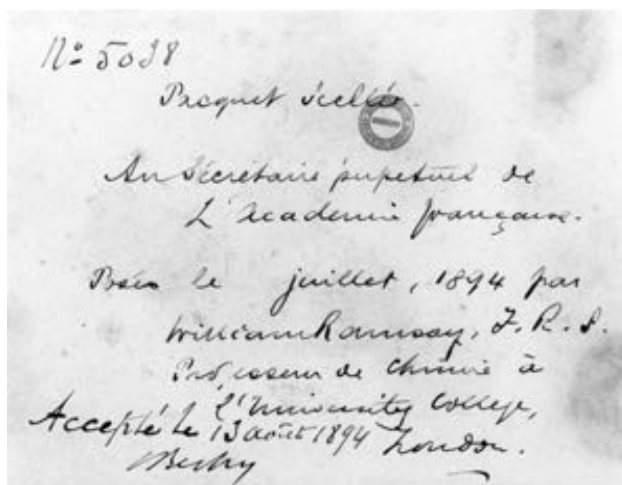 No 5038
Paquet scellé.
Au Secrétaire perpetuel de
L'Academie française.
le juillet, 1894 par
William Ramsay, F. R. S.
Professeur de Chimie à
l'University College,
Accepté le 13 août 1894 London.